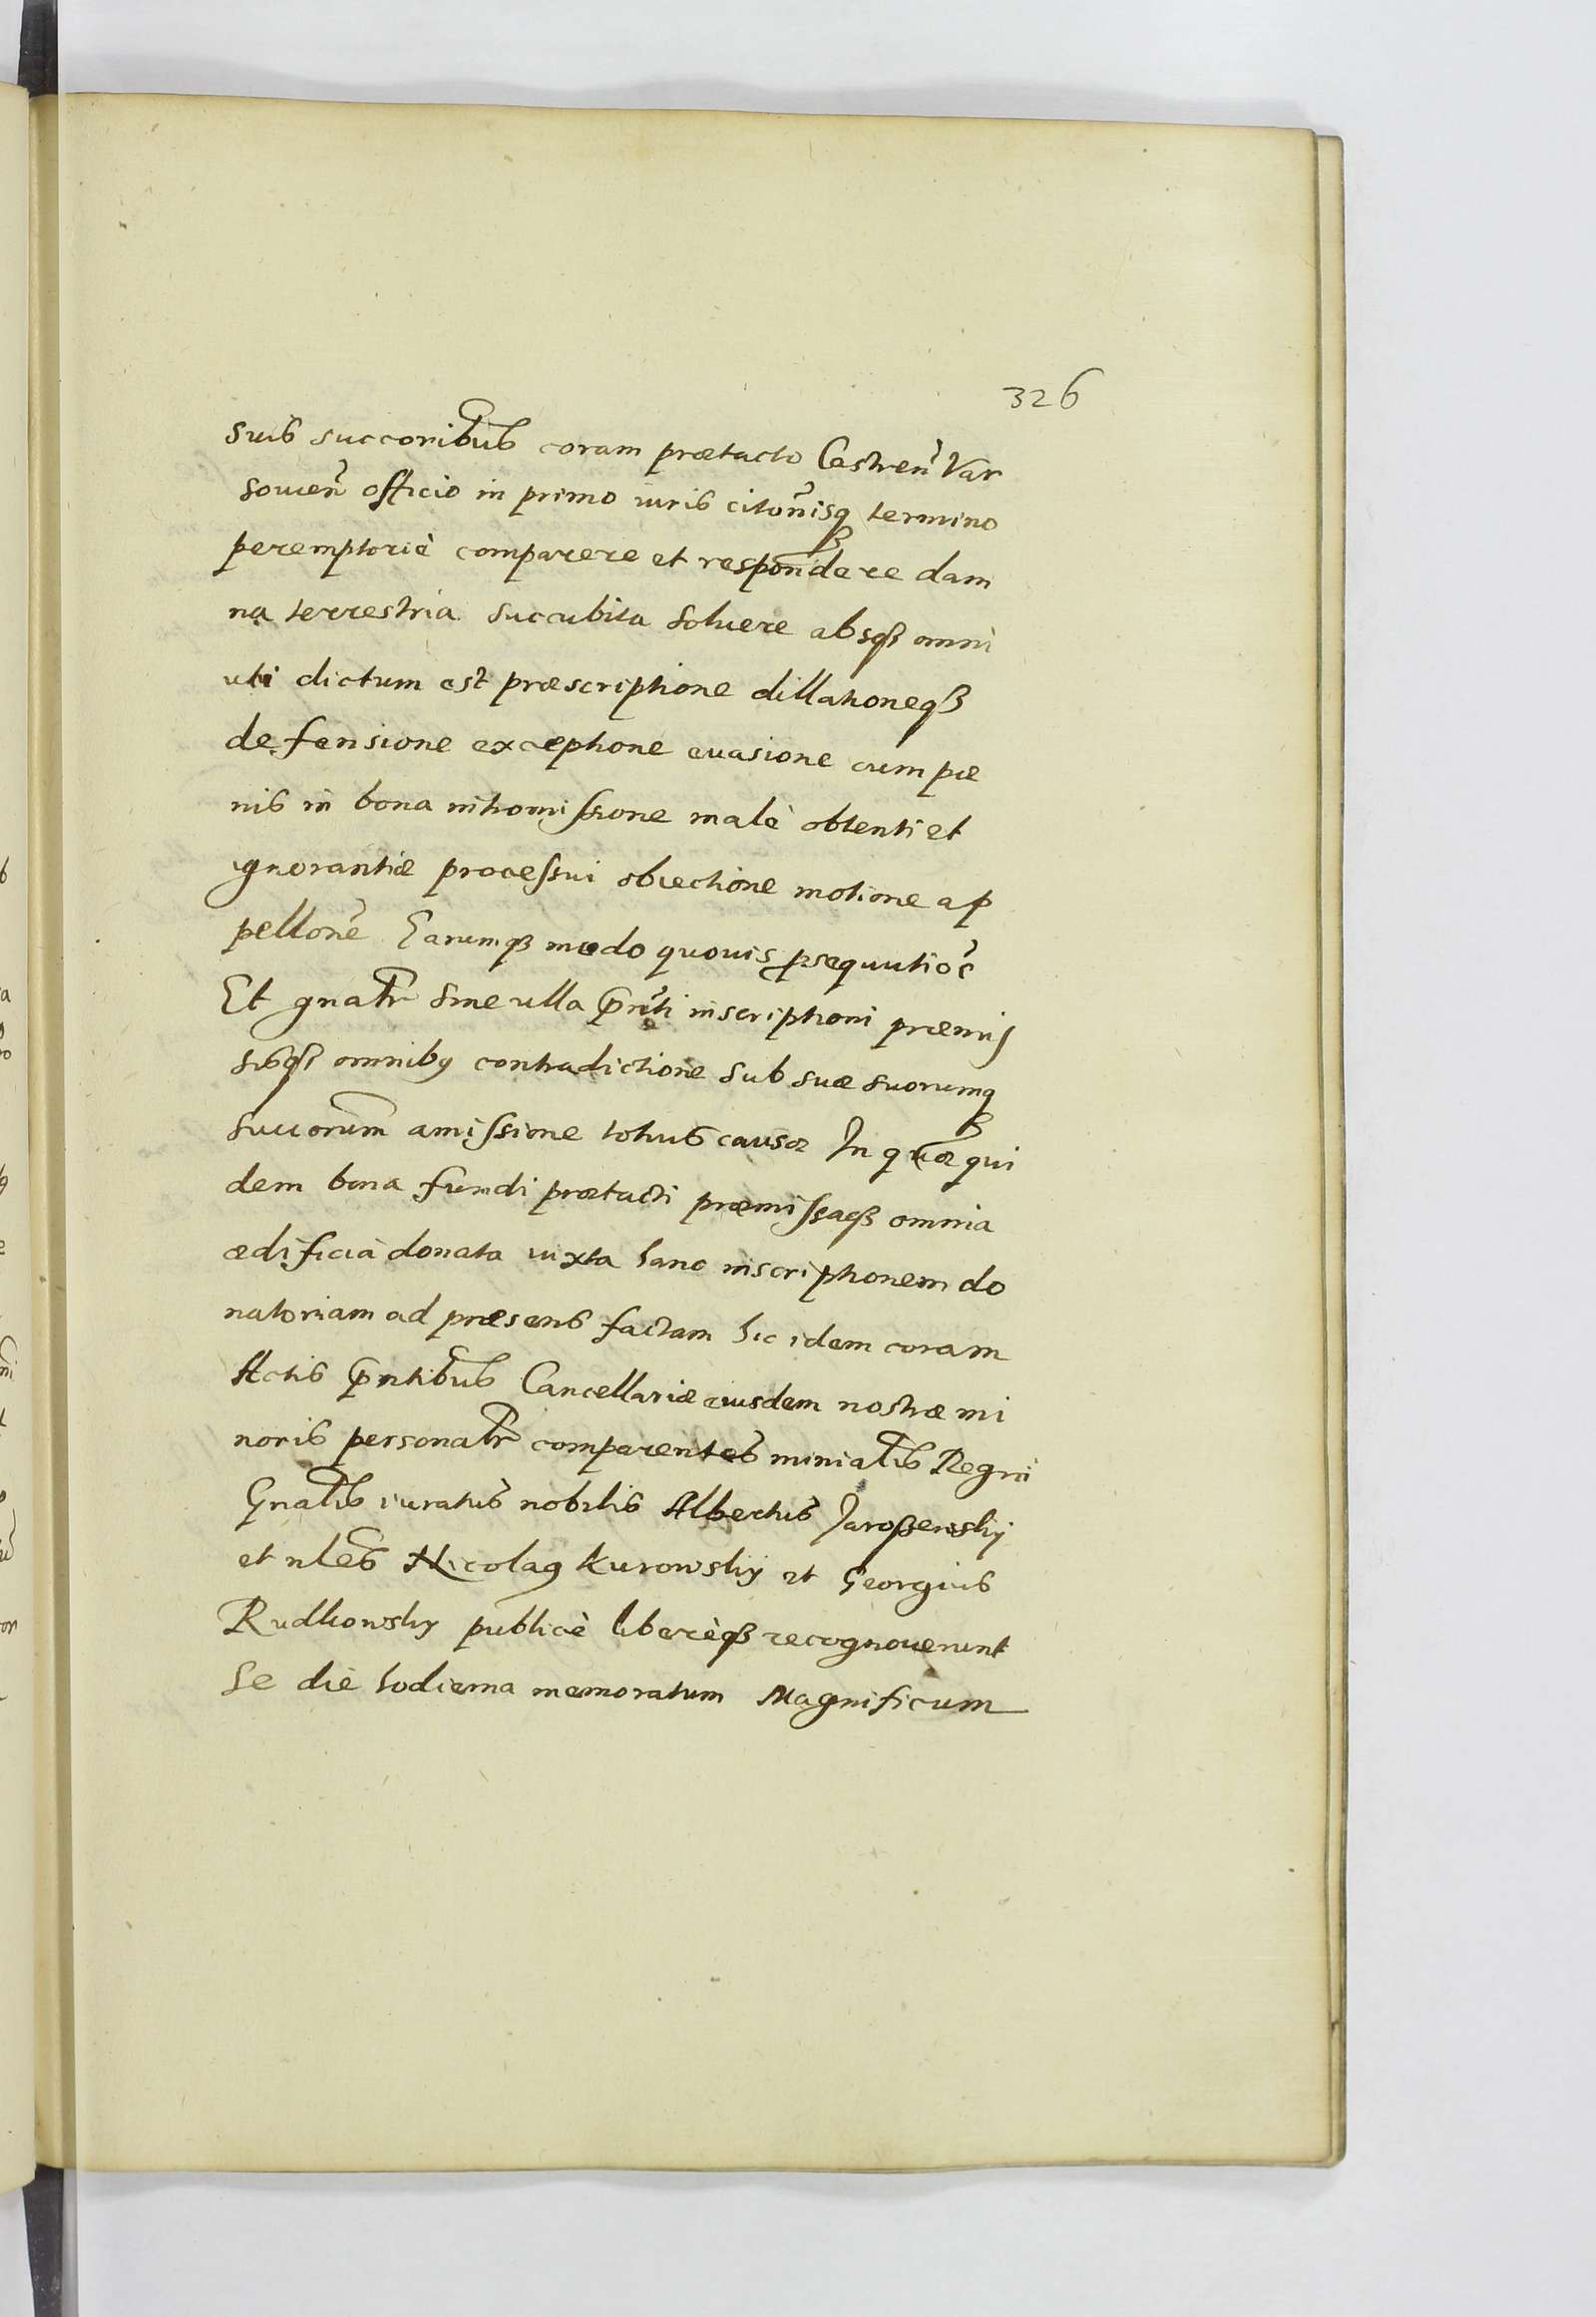 326
suis succoribus coram prætacto Castren Var
souien officio in primo iuris citonisq termino
peremptoriè comparere et respondere dam
na terrestria succubita soluere absqß omni
uti dictum est præscriptione dillationeqß
defensione exceptione euasione cum pæ
nis in bona intromissione malè obtenti et
ignorantiæ processui obiectione motione ap
pellone Earumqß modo quouis psequutioe
Et gnatr sine ulla pnti inscriptioni præmis
sisqß omnibꝯ contradictione sub suæ suorumq
succorum amissione totius causæ In quæ qui
dem bona fundi prætacti præmissaqß omnia
ædificia donata iuxta hanc inscriptionem do
natoriam ad præsens factam hic idem coram
Actis pntibus Cancellariæ eiusdem nostræ mi
noris personatr comparentes minialis Regni
Gnalis iuratus nobilis Albertus Jaroßewsky
et nles Nicolaꝯ Kurowsky et Georgius
Rudkowsky publicè liberèqß recognouerunt
Se die hodierna memoratum Magnificum